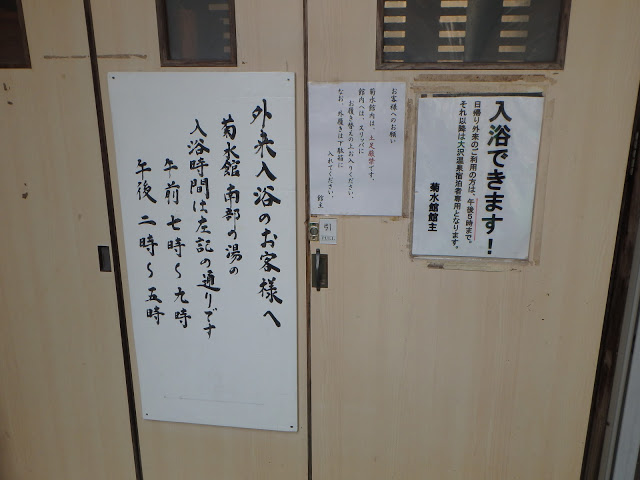 外来入浴のお客様へ
菊水館 南部の湯の
入浴時間は左記の通りです
午前 七時〜九時
午後 二時〜五時
お客様へのお願い
菊水館内は、土足厳禁です。
館内へは、スリッパに
お履き替えの上お入りください。
なお、外履きは下駄箱に
入れてください。
館主
引
PULL
入浴できます!
日帰り外来のご利用の方は、午後5時まで。
それ以降は大沢温泉宿泊者専用となります。
菊水館館主